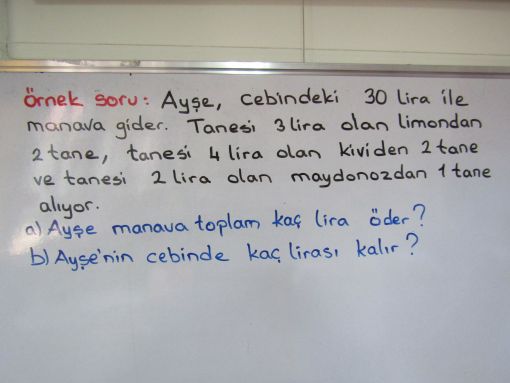 Örnek soru: Ayşe, cebindeki 30 lira ile
manava gider. Tanesi 3 lira olan limondan
2 tane, tanesi 4 lira olan kividen 2 tane
ve tanesi 2 lira olan maydonozdan 1 tane
alıyor.
a) Ayşe manava toplam kaç lira öder?
b) Ayşe'nin cebinde kaç lirası kalır?